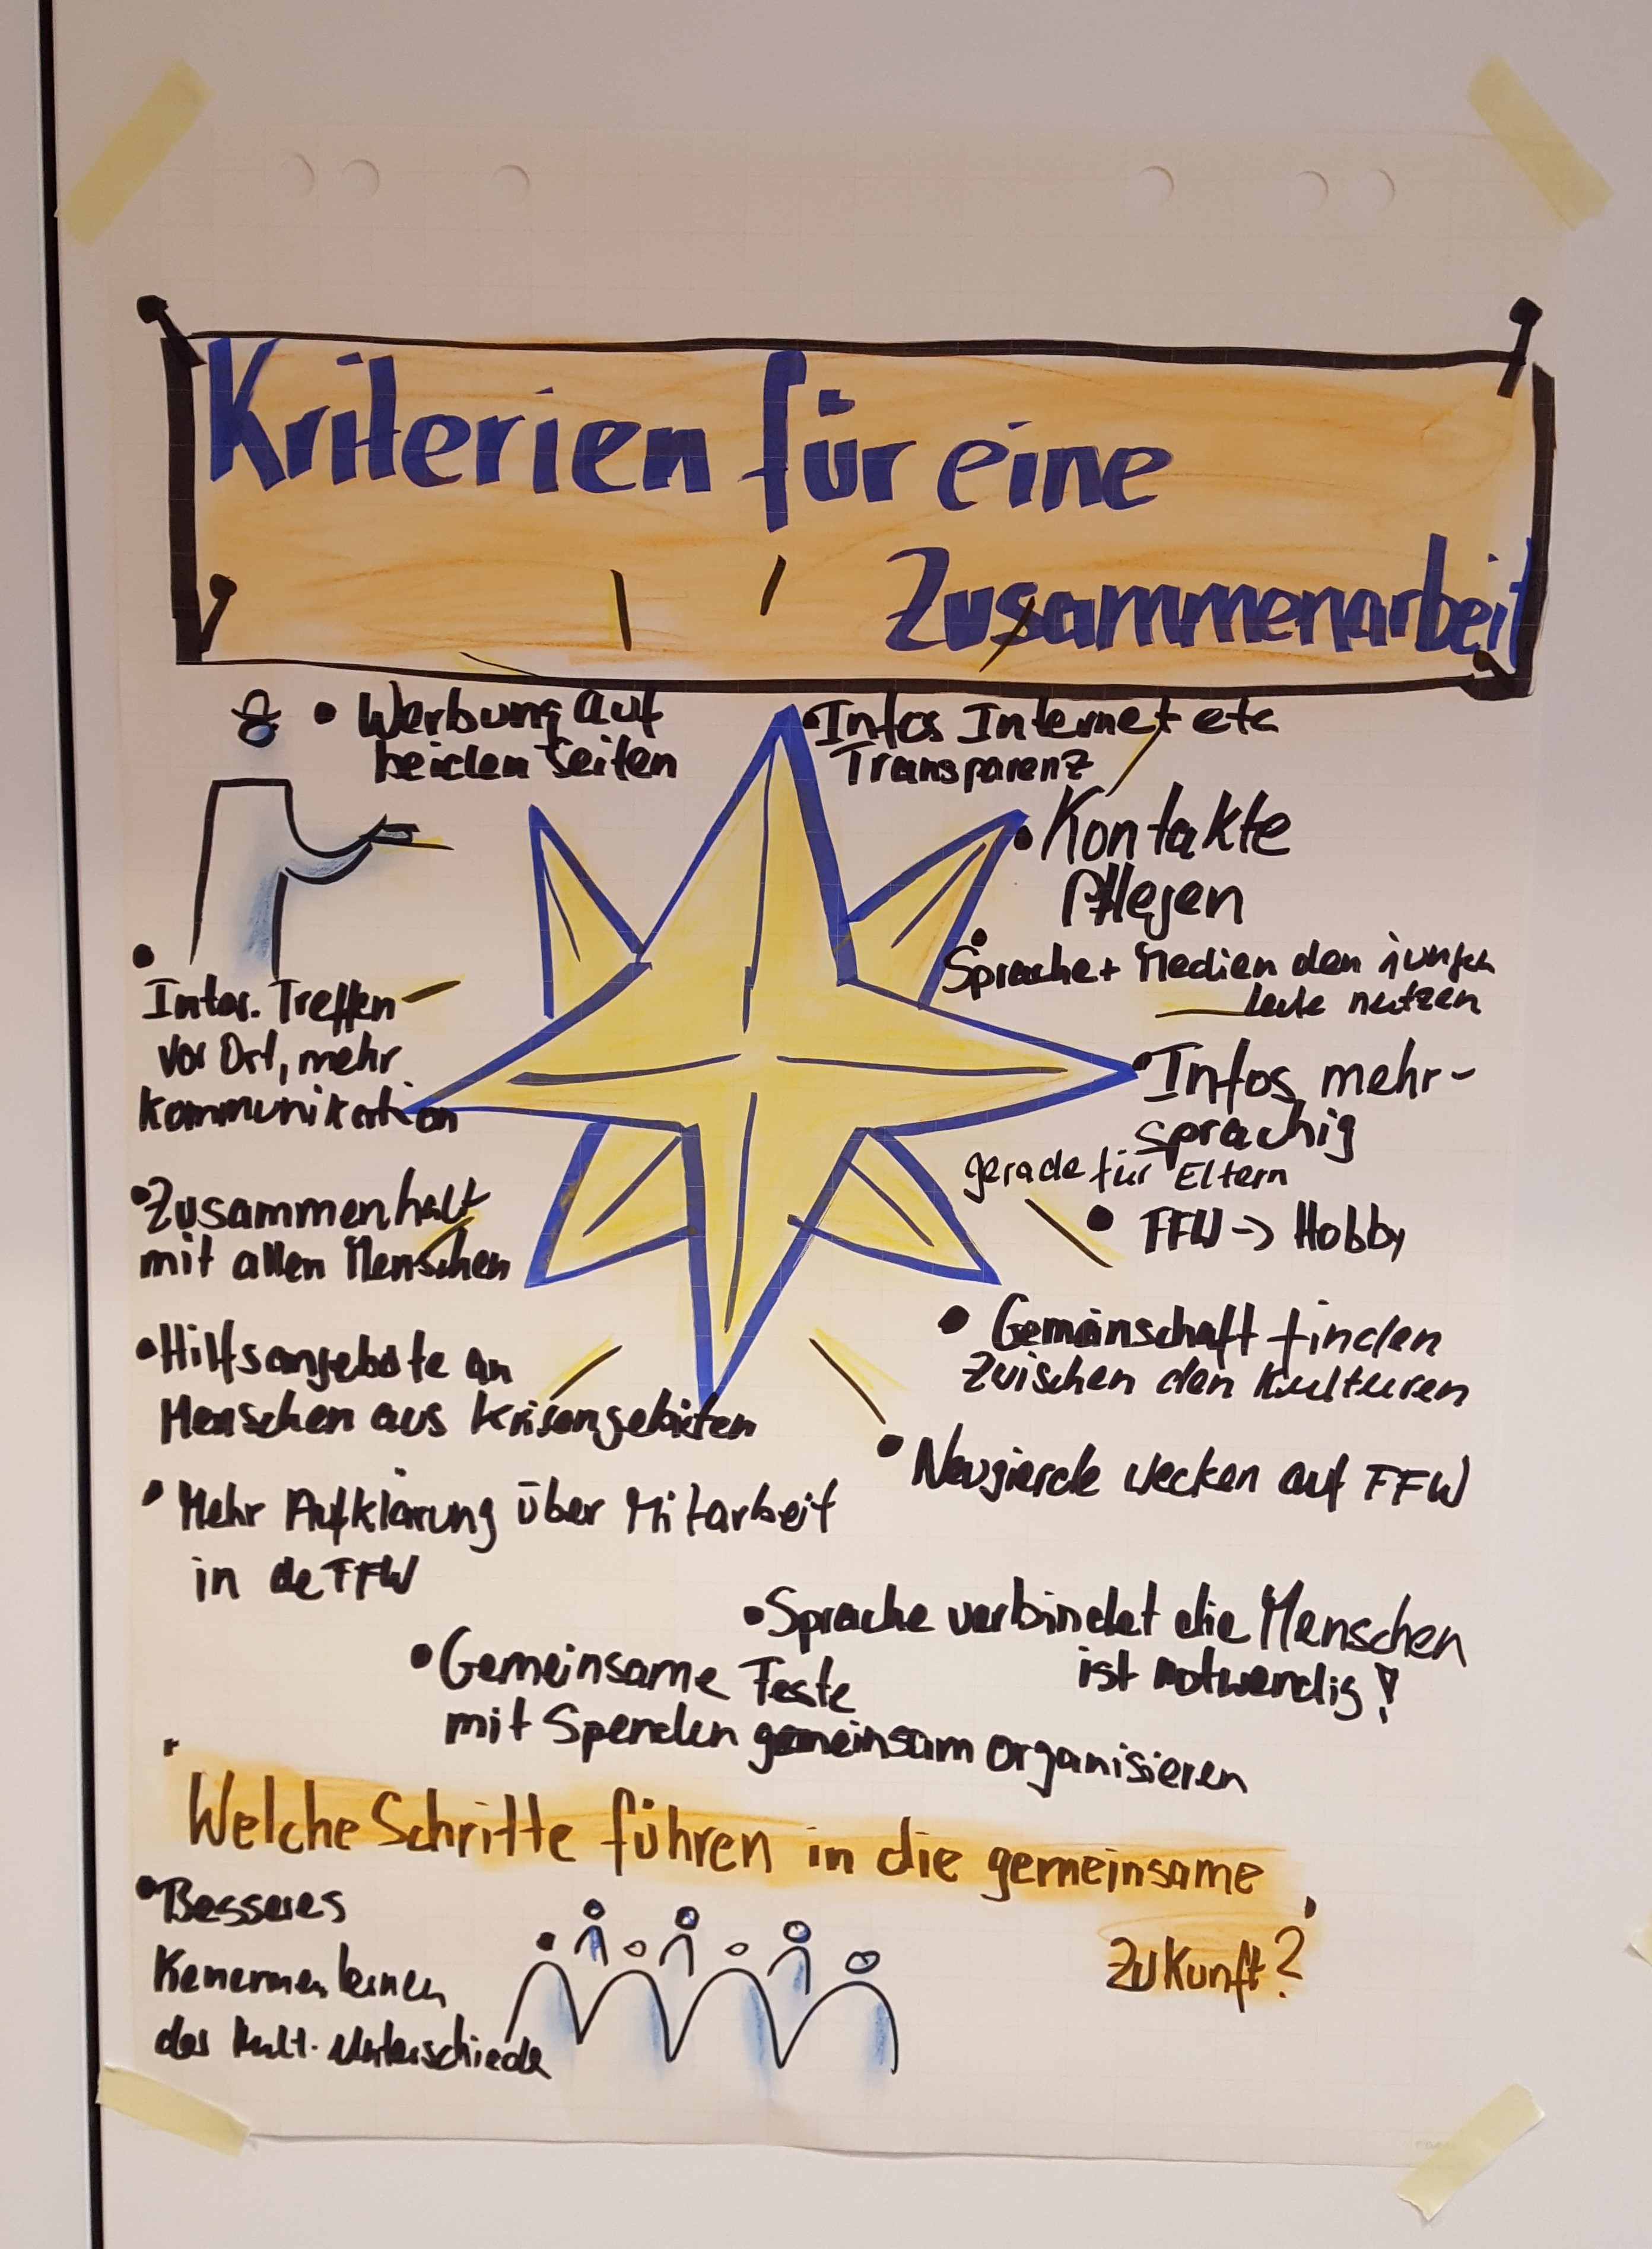 Kriterien für eine
Zusammenarbeit
• Werbung auf
beiden Seiten
• Infos Internet etc
Transparenz
• Kontakte
Pflegen
• Sprache + Medien den jungen
Leute nutzen
• Infos mehr-
sprachig
gerade für Eltern
• FFW -> Hobby
• Gemeinschaft finden
zwischen den Kulturen
• Neugierde wecken auf FFW
• Inter. Treffen
vor Ort, mehr
Kommunikation
• Zusammenhalt
mit allen Menschen
• Hilfsangebote an
Menschen aus Krisengebieten
• Mehr Aufklärung über Mitarbeit
in de FFW
• Sprache verbindet die Menschen
ist notwendig!
• Gemeinsame Feste
mit Spenden gemeinsam organisieren
Welche Schritte führen in die gemeinsame
Zukunft?
• Besseres
lernen
der kult. Unterschiede